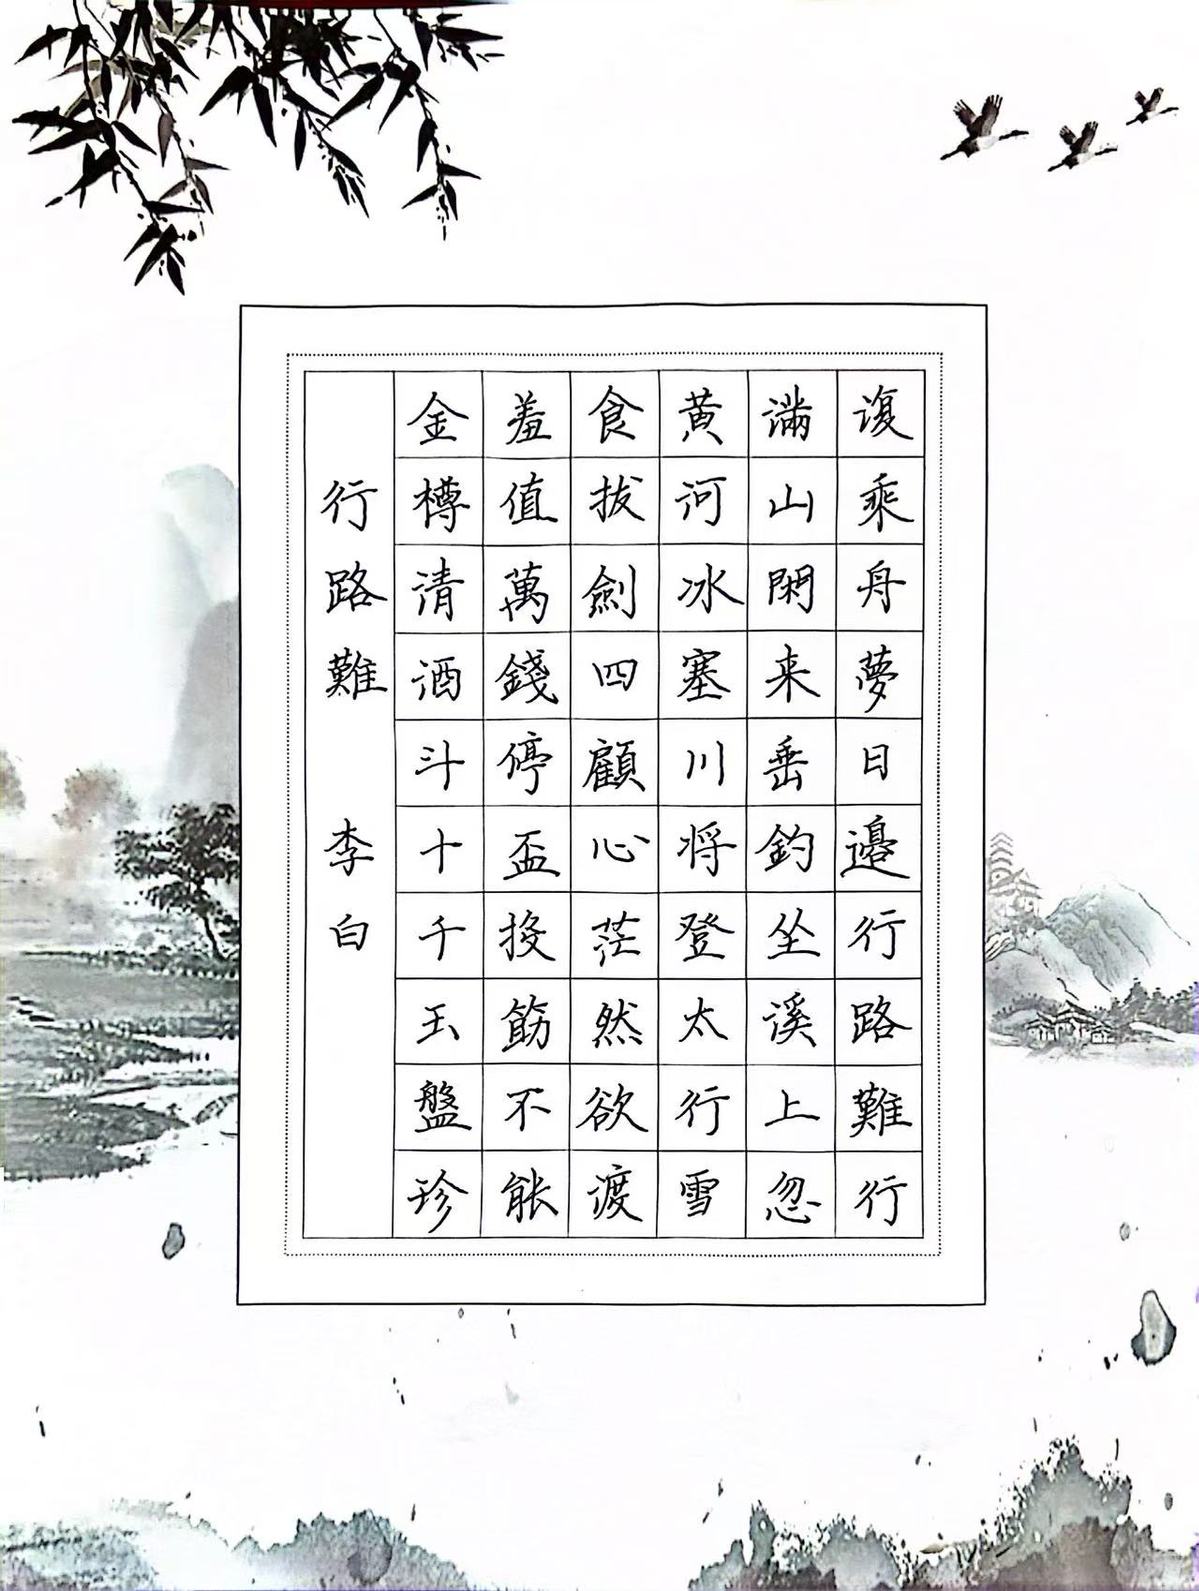 行路難 李白
金樽清酒斗十千玉盤珍
羞值萬錢停盃投筯不能
食拔劍四顧心茫然欲渡
黄河冰塞川将登太行雪
滿山閑来垂釣坐溪上忽
復乘舟夢日邊行路難行